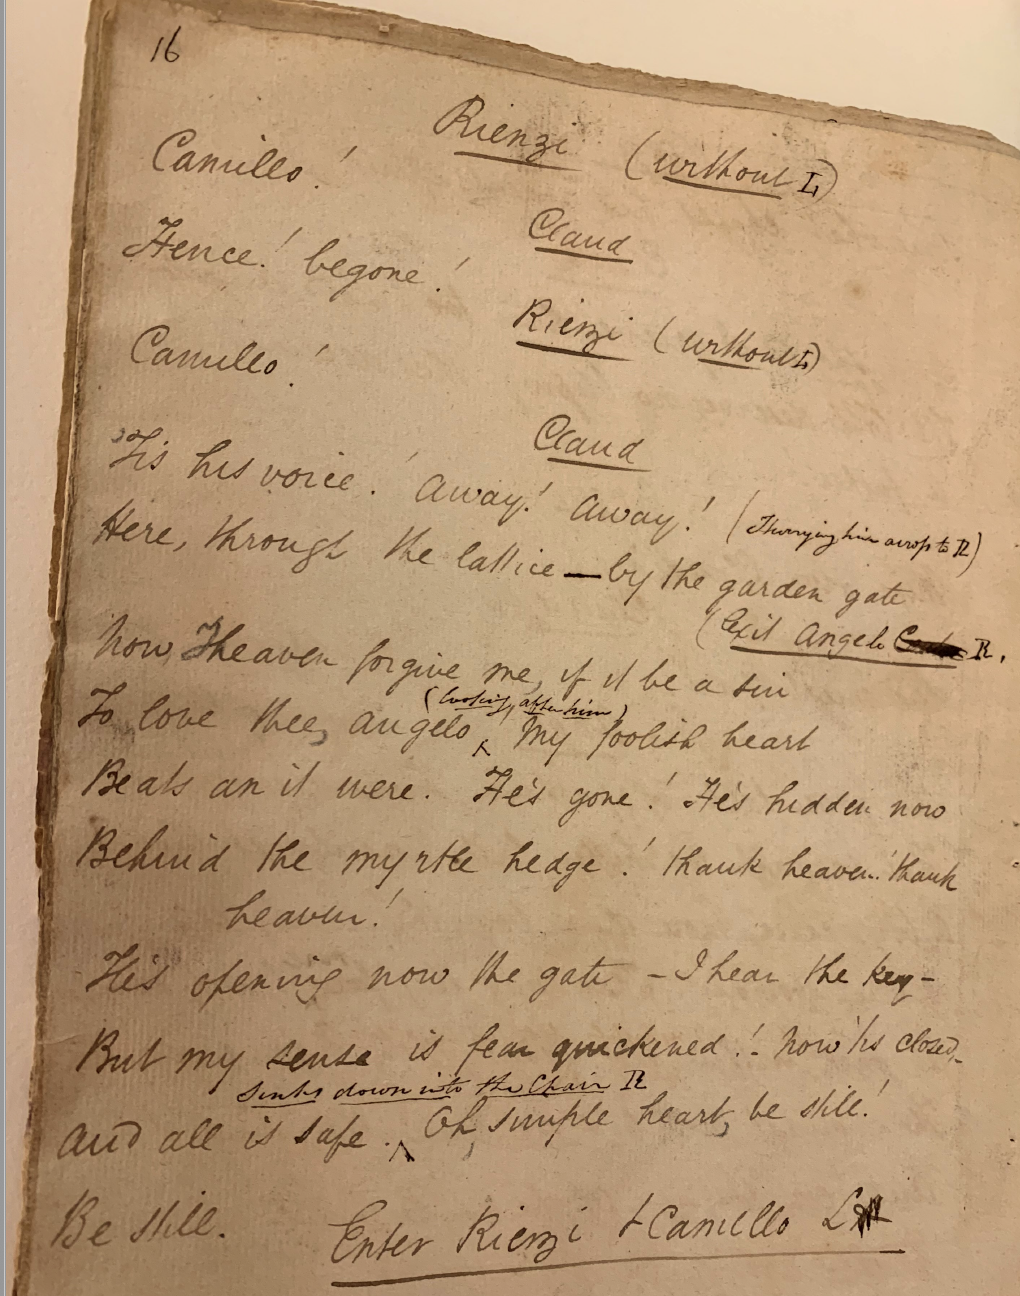 16
Rienzi (without L)
Camillo!
Claud
Hence! begone!
Rienzi (without L)
Camillo!
Claud
'Tis his voice! Away! Away! (Hurrying him across to R)
Here, through the lattice — by the garden gate
(Exit Angelo R.
Now, Heaven forgive me, if it be a sin
(looking after him)
To love thee, Angelo, ^ My foolish heart
Beats an it were. He's gone! He's hidden now
Behind the myrtle hedge! thank heaven! thank
heaven!
He's opening now the gate – I hear the key –
But my sense is fear quickened! – Now 'tis closed, –
Sinks down into the Chair R
And all is safe. ^ Oh, simple heart, be still!
Be still.
Enter Rienzi & Camillo L